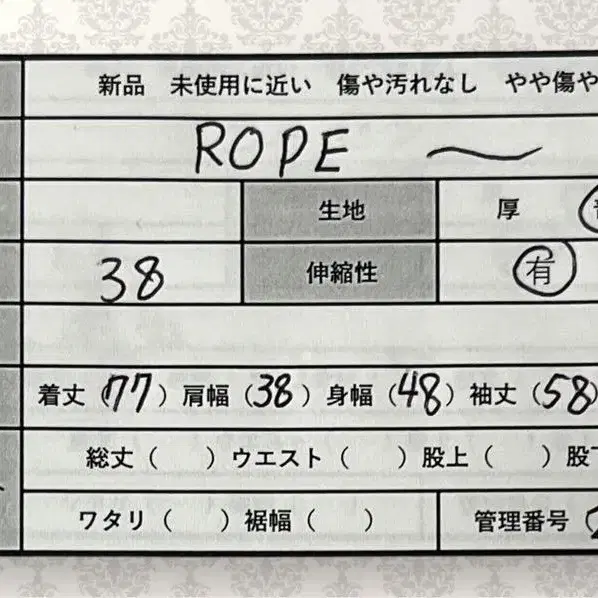 新品 未使用に近い 傷や汚れなし やや傷や
ROPE 〜
生地 厚
38 伸縮性 有
着丈（77）肩幅（38）身幅（48）袖丈（58）
総丈（ ）ウエスト（ ）股上（ ）股
ワタリ（ ）裾幅（ ） 管理番号